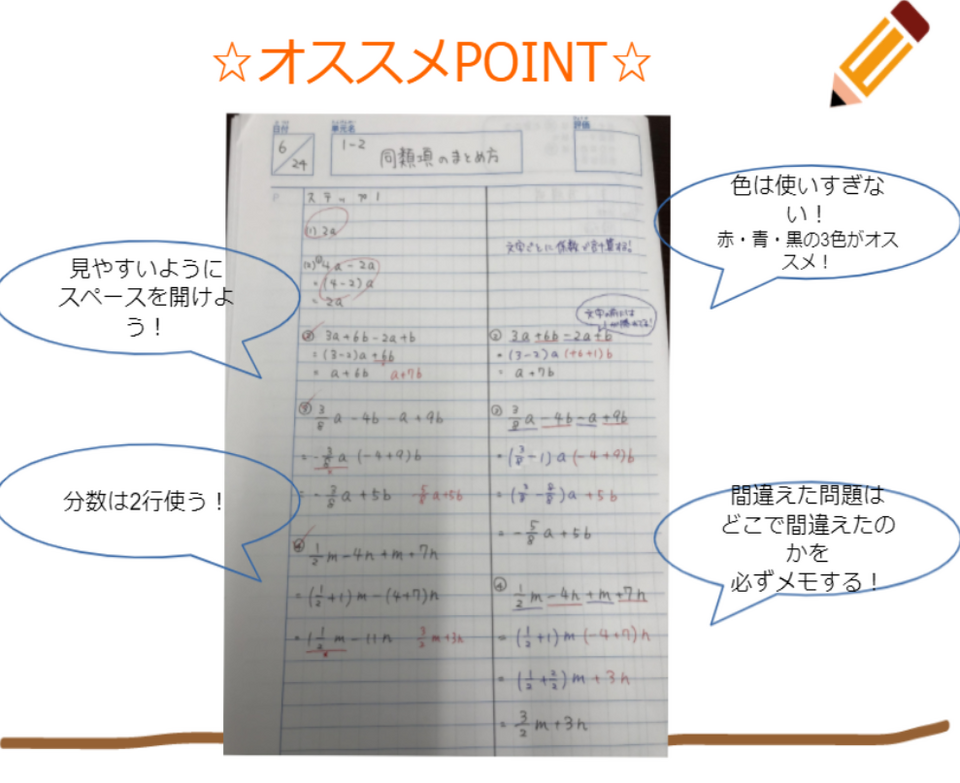 ☆オススメPOINT☆
色は使いすぎな
い！
赤・青・黒の3色がオス
スメ！
見やすいように
スペースを開けよ
う！
分数は2行使う！
間違えた問題は
どこで間違えたの
かを
必ずメモする！
日付
単元名
評価
6/24
1-2
同類項のまとめ方
ステップ1
(1) 2a
(2) 4a-2a
=(4-2)a
=2a
③ 3a+6b-2a+b
=(3-2)a+6b
=a+6b a+7b
3/8a-4b-a+9b
(-4+9)b
-3/8a+5b -5/8a+5b
1/2m-4n+m+7n
=(1/2+1)m-(4+7)n
=1 1/2m-11n 3/2m+3n
文字ごとに係数を計算する！
3a+6b-2a+b
=(3-2)a(+6+1)b
=a+7b
3/8a-4b-a+9b
=(3/8-1)a(-4+9)b
=(3/8-8/8)a+5b
=-5/8a+5b
④ 1/2m-4n+m+7n
=(1/2+1)m(-4+7)n
=(1/2+2/2)m+3n
=3/2m+3n